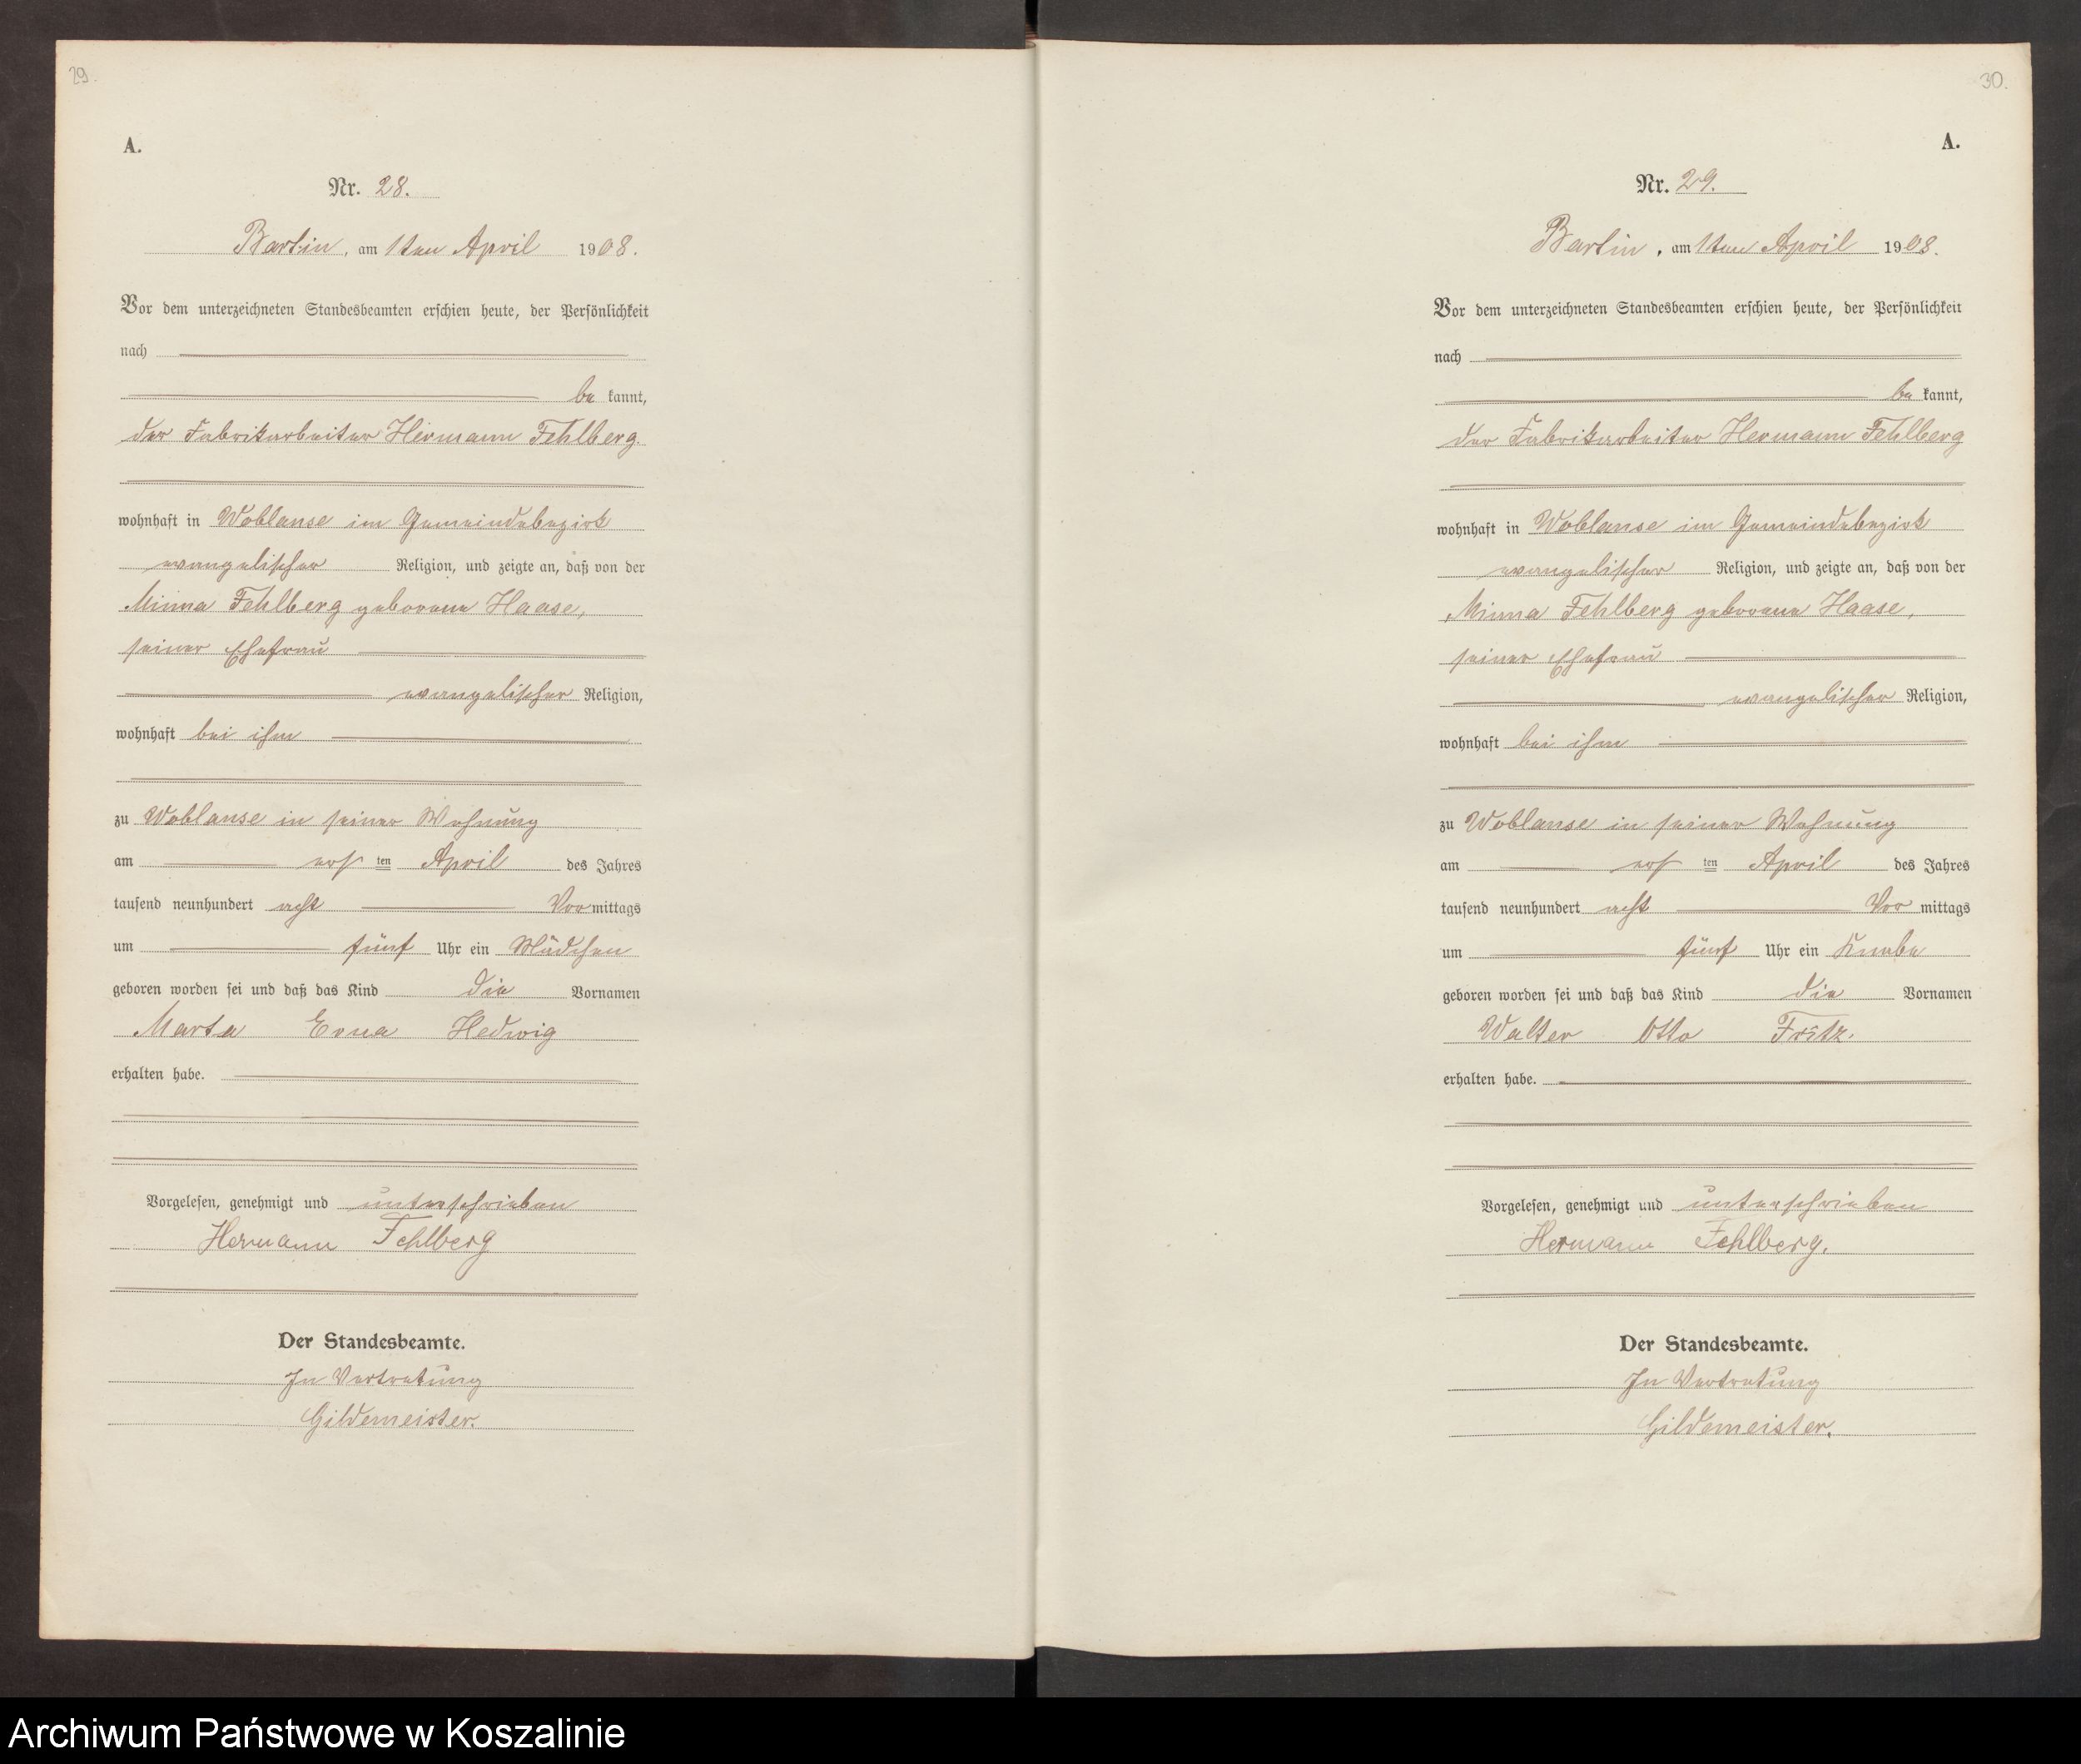 29.
A.
Nr. 28.
Bartin, am 1ten April 1908.
Vor dem unterzeichneten Standesbeamten erschien heute, der Persönlichkeit
nach
be kannt,
der Fabrikarbeiter Hermann Fehlberg
wohnhaft in Woblanse im Gemeindebezirk
evangelischer Religion, und zeigte an, daß von der
Minna Fehlberg geborene Haase,
seiner Ehefrau
evangelischer Religion,
wohnhaft bei ihm
zu Woblanse in seiner Wohnung
am ers ten April des Jahres
tausend neunhundert acht Vormittags
um fünf Uhr ein Mädchen
geboren worden sei und daß das Kind die Vornamen
Marta Erna Hedwig
erhalten habe.
Vorgelesen, genehmigt und unterschrieben
Hermann Fehlberg
Der Standesbeamte.
In Vertretung
Gildemeister.
30.
A.
Nr. 29.
Bartin, am 1ten April 1908.
Vor dem unterzeichneten Standesbeamten erschien heute, der Persönlichkeit
nach
be kannt,
der Fabrikarbeiter Hermann Fehlberg
wohnhaft in Woblanse im Gemeindebezirk
evangelischer Religion, und zeigte an, daß von der
Minna Fehlberg geborene Haase,
seiner Ehefrau
evangelischer Religion,
wohnhaft bei ihm
zu Woblanse in seiner Wohnung
am ers ten April des Jahres
tausend neunhundert acht Vor mittags
um fünf Uhr ein Knabe
geboren worden sei und daß das Kind die Vornamen
Walter Otto Fritz.
erhalten habe.
Vorgelesen, genehmigt und unterschrieben
Hermann Fehlberg.
Der Standesbeamte.
In Vertretung
Gildemeister.
Archiwum Państwowe w Koszalinie